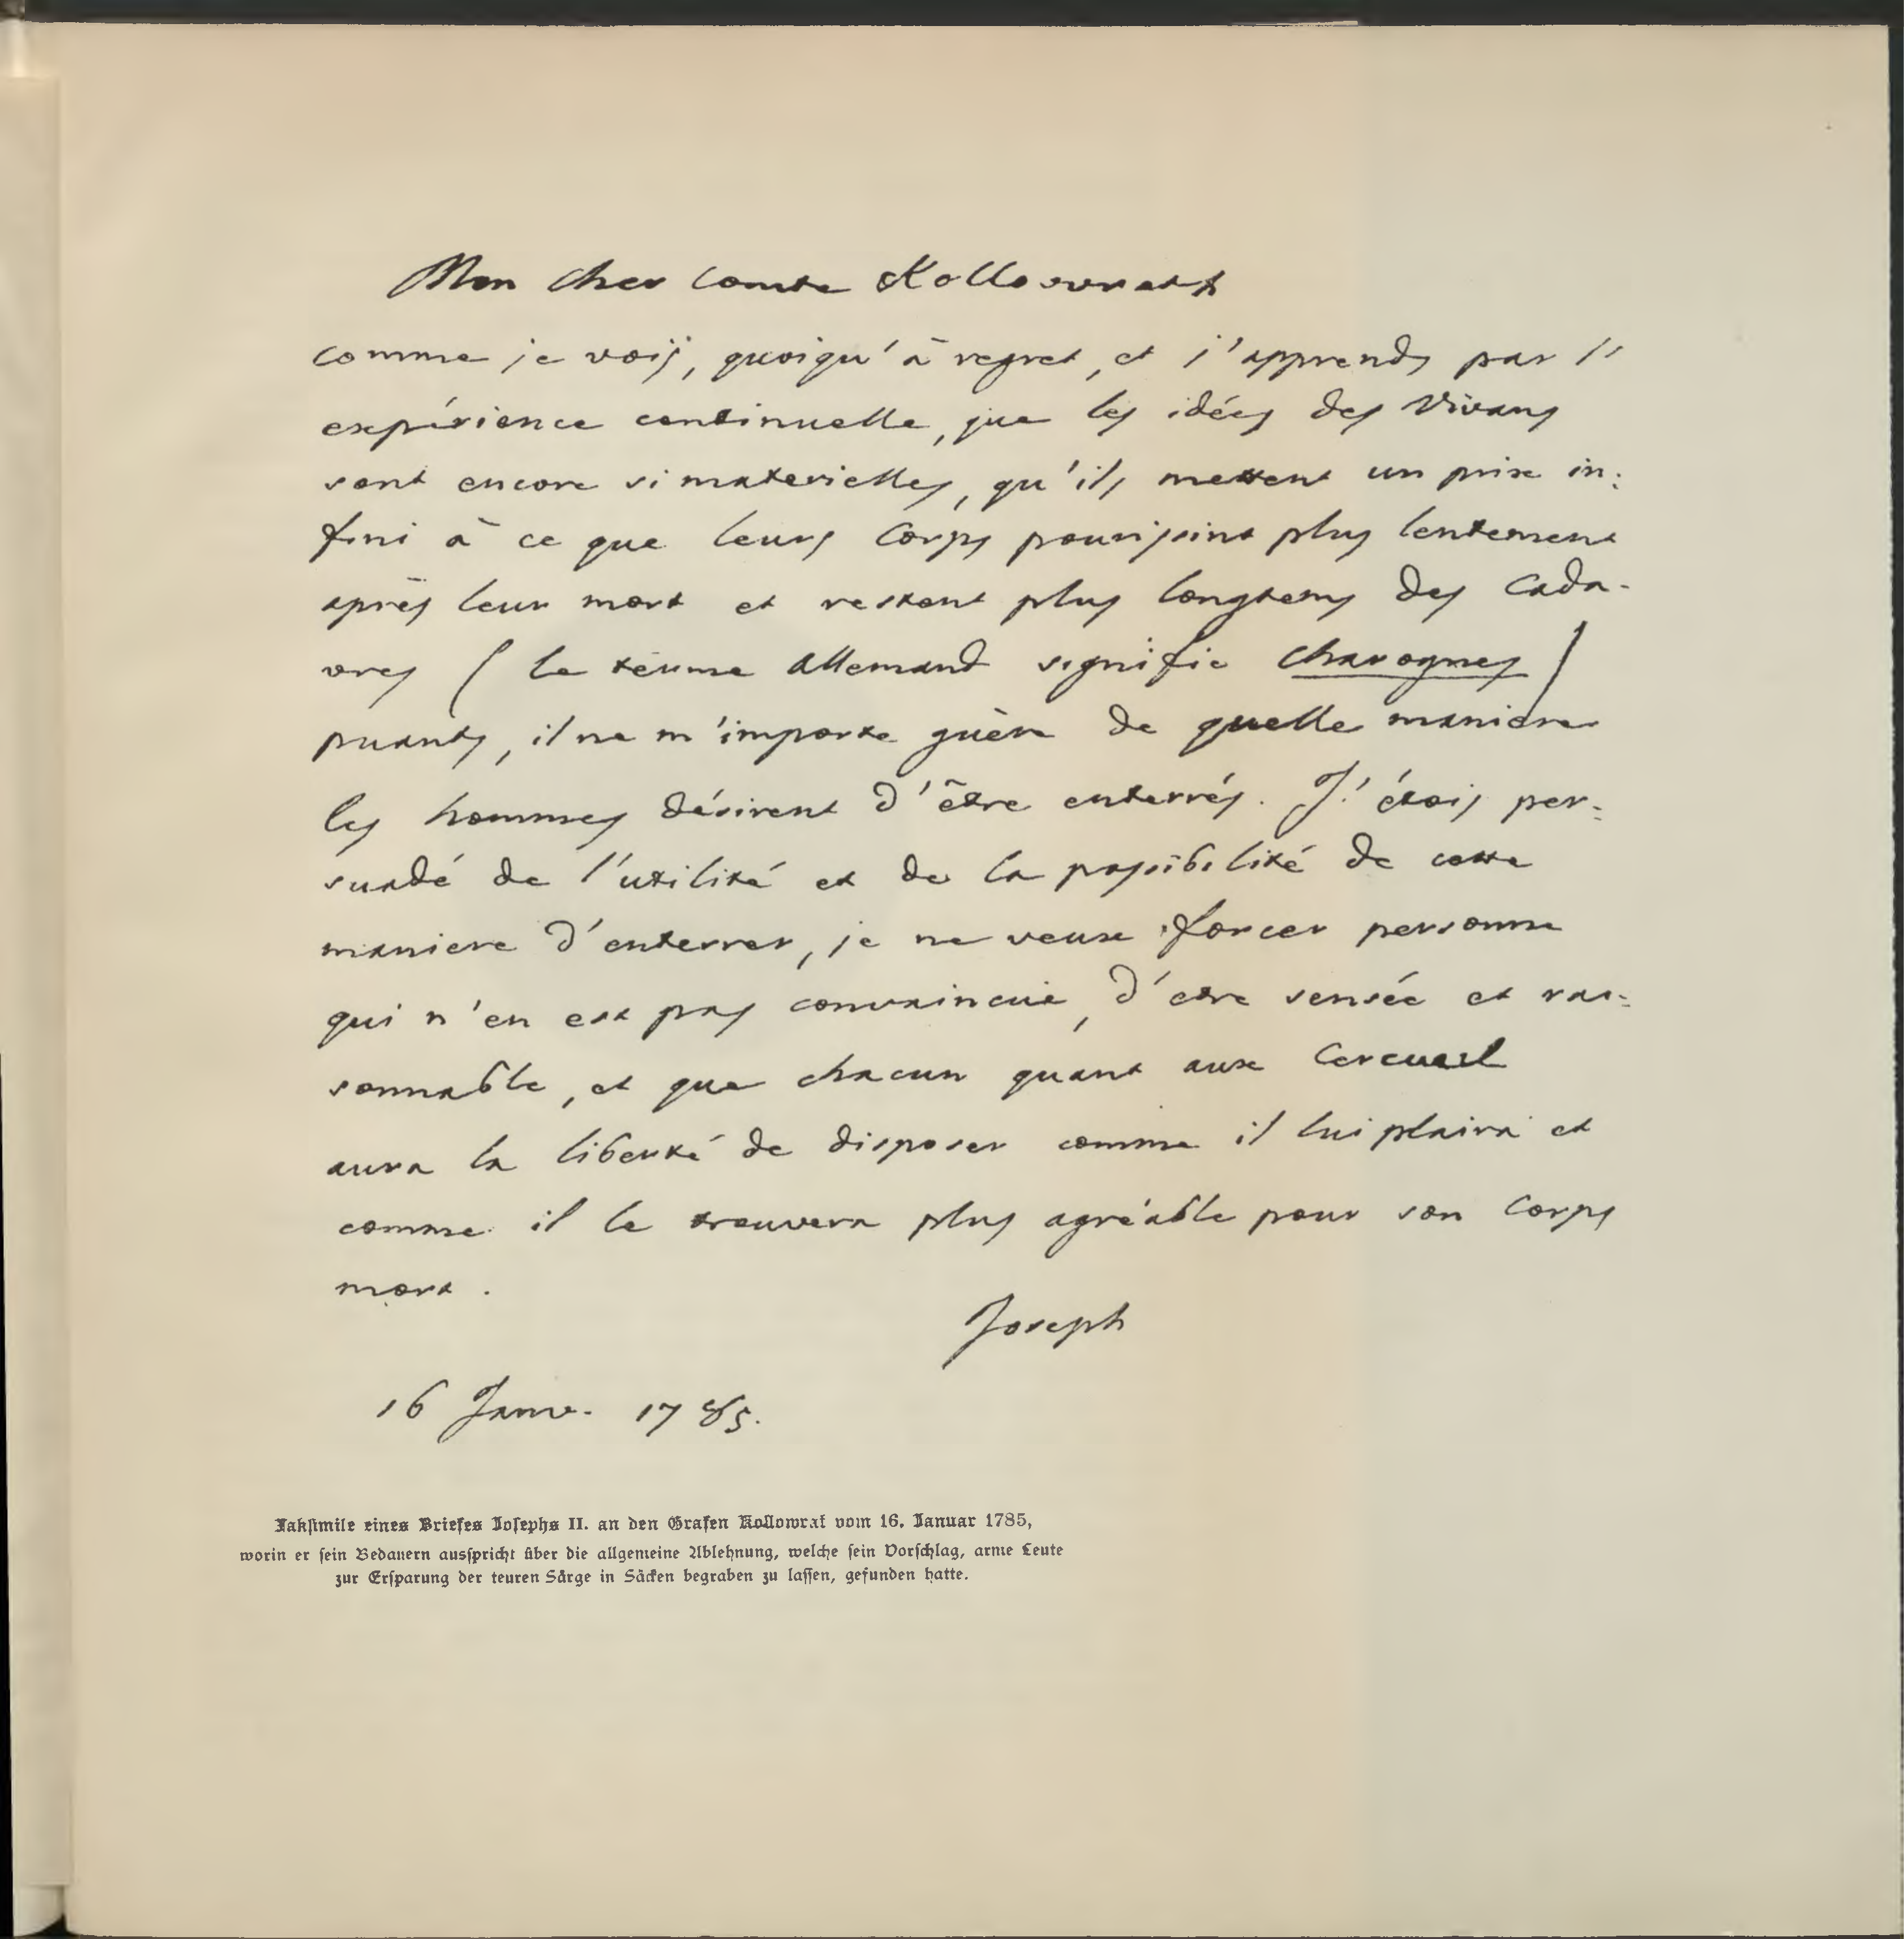 Mon cher Comte Kollowratt
comme je vois, quoiqu'à regret, et j'apprends par l'
expérience continuelle, que les idées des Vivans
sont encore si materielles, qu'ils mettent un prix in:
fini à ce que leurs Corps pourissint plus lentement
après leur mort et restent plus longtems des Cada-
vres ( le terme allemand signifie charognes )
puants, il ne m'importe guère de quelle maniere
les hommes désirent d'être enterrés. J'étois per:
suadé de l'utilité et de la possibilité de cette
maniere d'enterrer, je ne veux forcer personne
qui n'en est pas convaincuë, d'etre sensée et rai:
sonnable, et que chacun quant aux Cercueil
aura la liberté de disposer comme il lui plaira et
comme il le trouvera plus agréable pour son Corps
mort.
Joseph
16 Janv. 1785.
Faksimile eines Briefes Josephs II. an den Grafen Kollowrat vom 16. Januar 1785,
worin er sein Bedauern ausspricht über die allgemeine Ablehnung, welche sein Vorschlag, arme Leute
zur Ersparung der teuren Särge in Säcken begraben zu lassen, gefunden hatte.